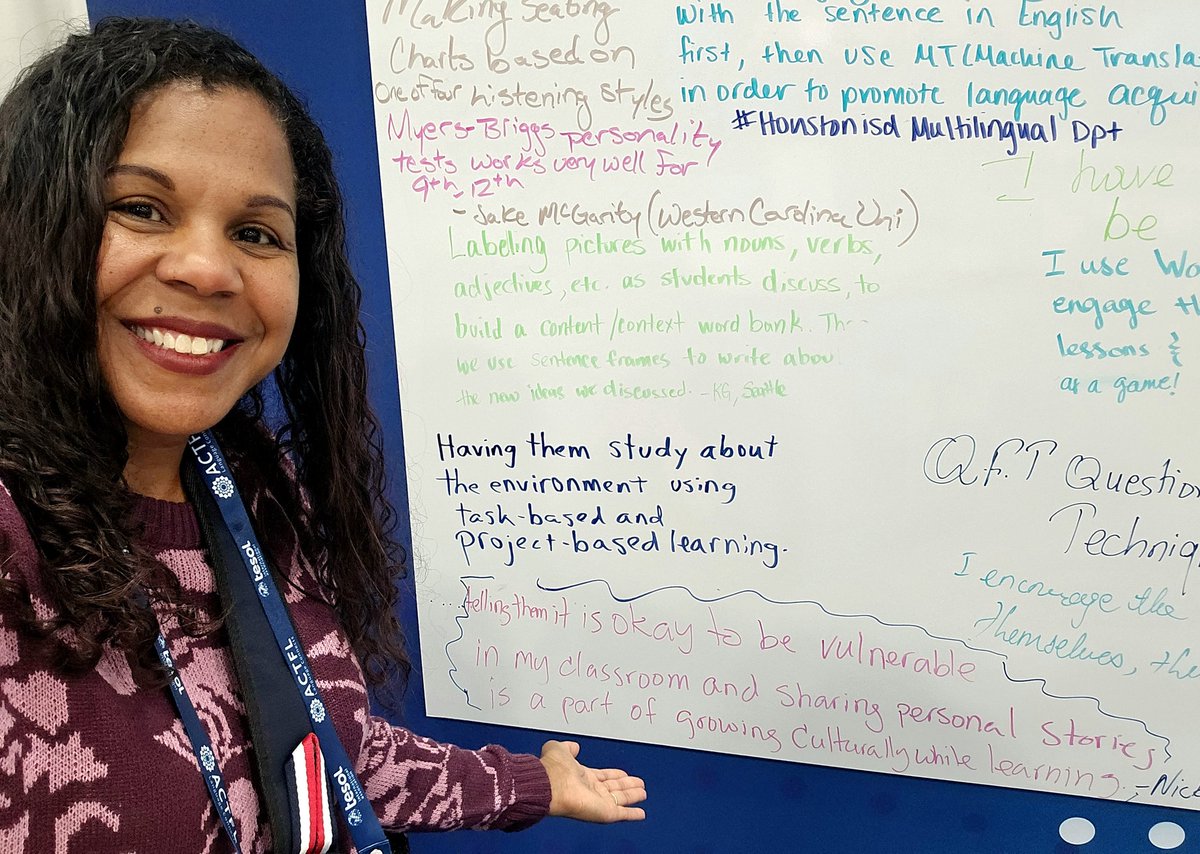 Making Seating
Charts based on
one of four Listening styles
with the sentence in English
first, then use MT (Machine Transla
in order to promote language acqui
#Houstonisd Multilingual Dpt
Myers-Briggs personality
tests works very well for
9th-12th
- Jake McGarity (Western Carolina Uni)
I have
be
Labeling pictures with nouns, verbs,
adjectives, etc. as students discuss, to
build a content/context word bank. Th
we use sentence frames to write abou
the new ideas we discussed. -KG, Seattle
I use Wo
engage th
lessons &
as a game!
Having them study about
the environment using
task-based and
project-based learning.
Q.F.T Question
Techniq
I encourage the
themselves, the
telling them it is okay to be vulnerable
in my classroom and sharing personal stories
is a part of growing culturally while learning. -Nick
ACTFL
tesol
ACTFL
tesol
tesol